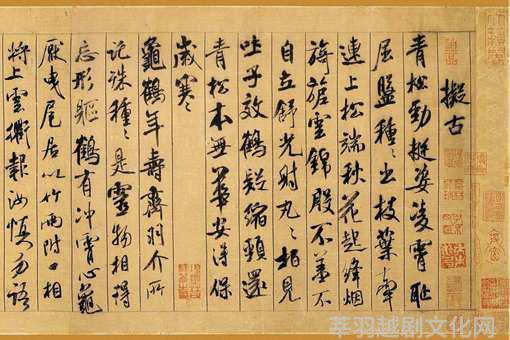 擬古
青松勁挺姿凌霄恥
屈盤種々出枝葉牽
連上松端秋花起絳烟
旖旎雲錦殷不羞不
自立舒光射丸々柏見
吐子效鶴疑縮頸還
青松本無華安得保
歲寒
龜鶴年壽齊羽介所
託殊種々是靈物相得
忘形軀鶴有沖霄心龜
厭曳尾居以竹兩附口相
將上雲衢報汝慎勿語
莘羽越剧文化网